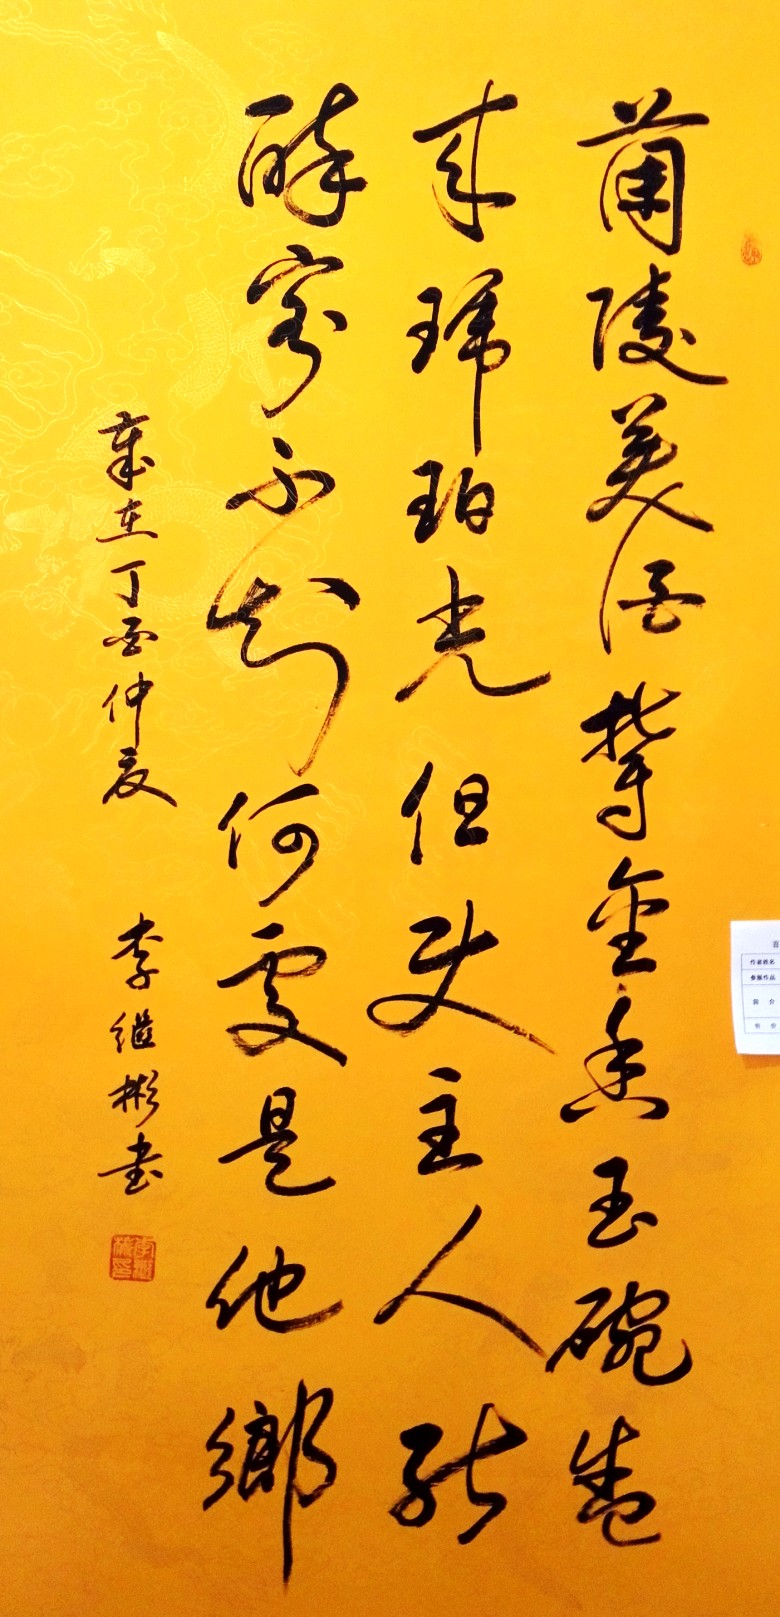 蘭陵美酒鬱金香玉碗盛
来琥珀光但使主人能
醉客不知何處是他鄉
歲在丁酉仲夏 李继彬书
作者姓名
参展作品